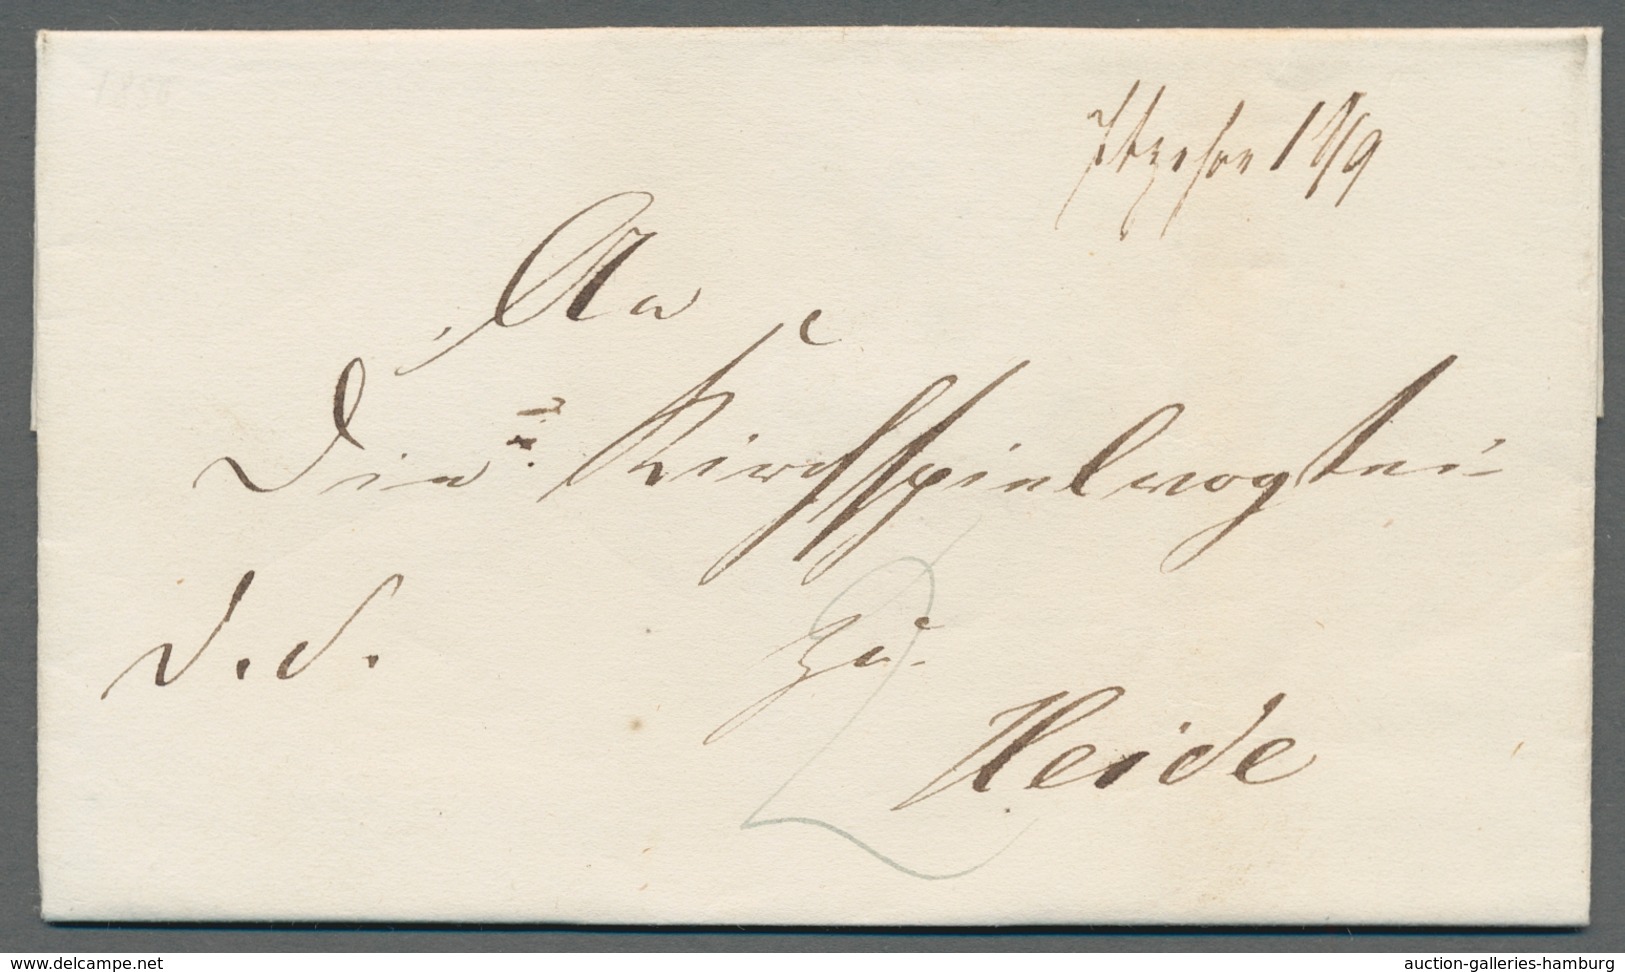 1850
Itzehoe 18/9
An
Die Kirchspielvogtei
d. d.
zu
2
Heide
www.delcampe.net
auction-galleries-hamburg